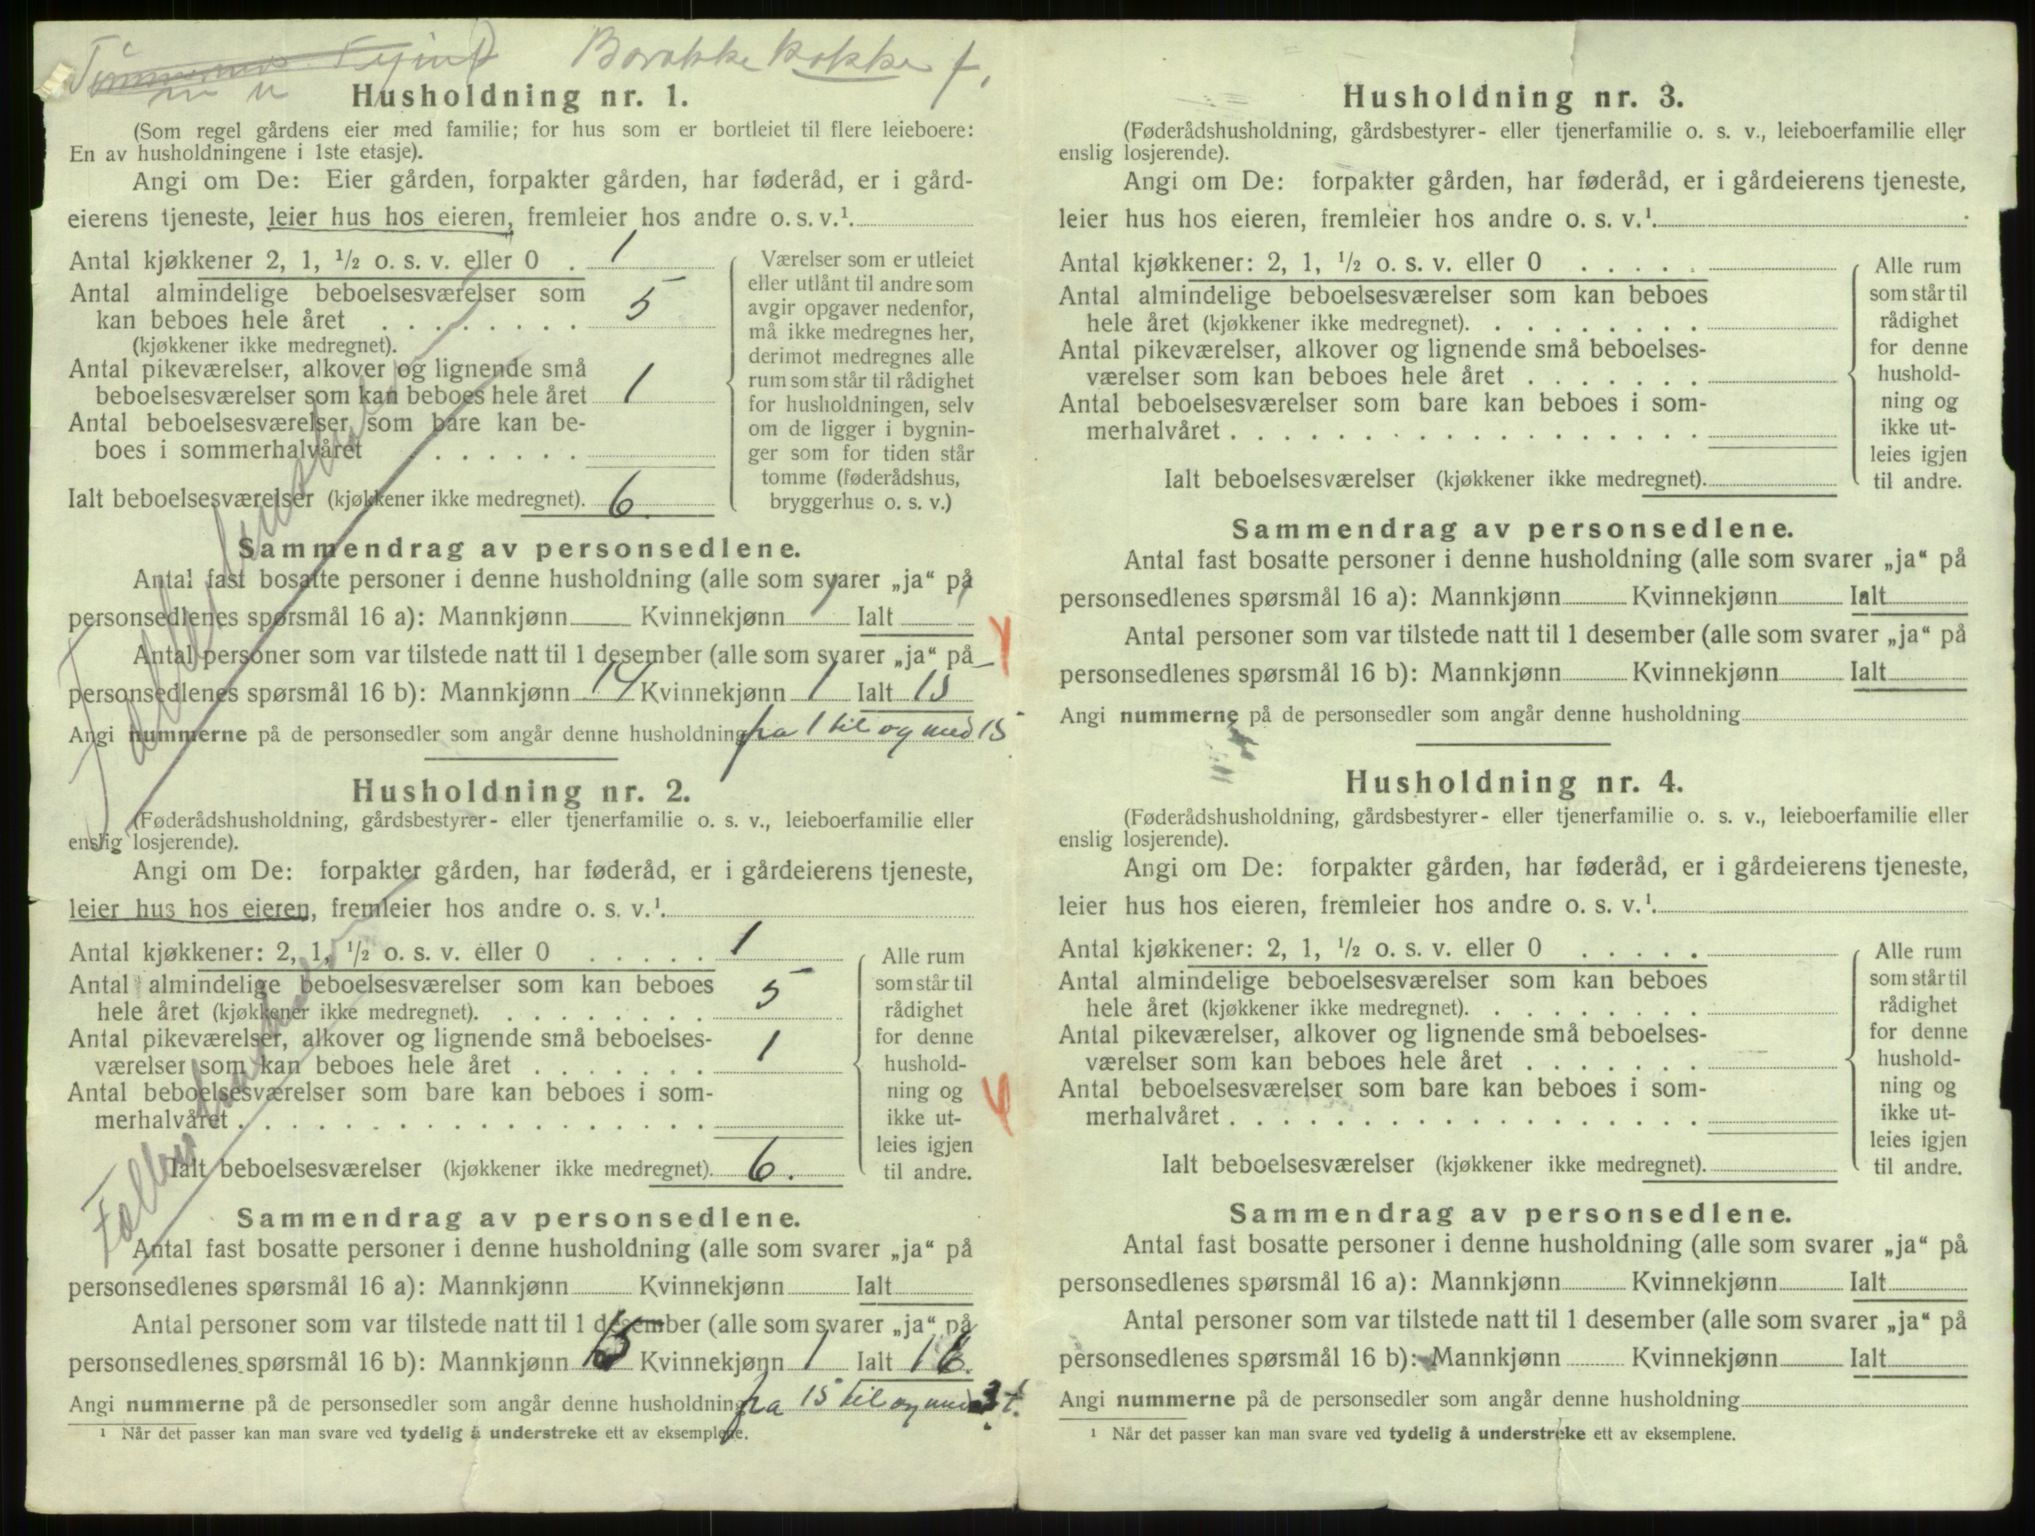 Barakke kokke f.
Husholdning nr. 1.
(Som regel gårdens eier med familie; for hus som er bortleiet til flere leieboere:
En av husholdningene i 1ste etasje).
Angi om De: Eier gården, forpakter gården, har føderåd, er i gård-
eierens tjeneste, leier hus hos eieren, fremleier hos andre o. s. v.¹.
Antal kjøkkener 2, 1, ½ o. s. v. eller 0 . 1
Antal almindelige beboelsesværelser som
kan beboes hele året . . . . . . . . 5
(kjøkkener ikke medregnet).
Antal pikeværelser, alkover og lignende små
beboelsesværelser som kan beboes hele året 1
Antal beboelsesværelser som bare kan be-
boes i sommerhalvåret . . . . . .
Ialt beboelsesværelser (kjøkkener ikke medregnet). 6.
Værelser som er utleiet
eller utlånt til andre som
avgir opgaver nedenfor,
må ikke medregnes her,
derimot medregnes alle
rum som står til rådighet
for husholdningen, selv
om de ligger i bygnin-
ger som for tiden står
tomme (føderådshus,
bryggerhus o. s. v.)
Sammendrag av personsedlene.
Antal fast bosatte personer i denne husholdning (alle som svarer „ja“ på
personsedlenes spørsmål 16 a): Mannkjønn Kvinnekjønn 1 Ialt 1
Antal personer som var tilstede natt til 1 desember (alle som svarer „ja“ på
personsedlenes spørsmål 16 b): Mannkjønn 14 Kvinnekjønn 1 Ialt 15
Angi nummerne på de personsedler som angår denne husholdning fra 1 til og med 15
Husholdning nr. 2.
(Føderådshusholdning, gårdsbestyrer- eller tjenerfamilie o. s. v., leieboerfamilie eller
enslig losjerende).
Angi om De: forpakter gården, har føderåd, er i gårdeierens tjeneste,
leier hus hos eieren, fremleier hos andre o. s. v.¹.
Antal kjøkkener: 2, 1, ½ o. s. v. eller 0 . . . . . 1
Antal almindelige beboelsesværelser som kan beboes
hele året (kjøkkener ikke medregnet). . . . . . . . . 5
Antal pikeværelser, alkover og lignende små beboelses-
værelser som kan beboes hele året . . . . . . . 1
Antal beboelsesværelser som bare kan beboes i som-
merhalvåret . . . . . . . . . . . . . . . . . .
Ialt beboelsesværelser (kjøkkener ikke medregnet). 6.
Alle rum
som står til
rådighet
for denne
hushold-
ning og
ikke ut-
leies igjen
til andre.
Sammendrag av personsedlene.
Antal fast bosatte personer i denne husholdning (alle som svarer „ja“ på
personsedlenes spørsmål 16 a): Mannkjønn Kvinnekjønn Ialt
Antal personer som var tilstede natt til 1 desember (alle som svarer „ja“ på
personsedlenes spørsmål 16 b): Mannkjønn 15 Kvinnekjønn 1 Ialt 16.
Angi nummerne på de personsedler som angår denne husholdning fra 15 til og med
¹ Når det passer kan man svare ved tydelig å understreke ett av eksemplene.
Husholdning nr. 3.
(Føderådshusholdning, gårdsbestyrer- eller tjenerfamilie o. s. v., leieboerfamilie eller
enslig losjerende).
Angi om De: forpakter gården, har føderåd, er i gårdeierens tjeneste,
leier hus hos eieren, fremleier hos andre o. s. v.¹.
Antal kjøkkener: 2, 1, ½ o. s. v. eller 0 . . . . .
Antal almindelige beboelsesværelser som kan beboes
hele året (kjøkkener ikke medregnet). . . . . . . . .
Antal pikeværelser, alkover og lignende små beboelses-
værelser som kan beboes hele året . . . . . . .
Antal beboelsesværelser som bare kan beboes i som-
merhalvåret . . . . . . . . . . . . . . . . . .
Ialt beboelsesværelser (kjøkkener ikke medregnet).
Alle rum
som står til
rådighet
for denne
hushold-
ning og
ikke ut-
leies igjen
til andre.
Sammendrag av personsedlene.
Antal fast bosatte personer i denne husholdning (alle som svarer „ja“ på
personsedlenes spørsmål 16 a): Mannkjønn Kvinnekjønn Ialt
Antal personer som var tilstede natt til 1 desember (alle som svarer „ja“ på
personsedlenes spørsmål 16 b): Mannkjønn Kvinnekjønn Ialt
Angi nummerne på de personsedler som angår denne husholdning
Husholdning nr. 4.
(Føderådshusholdning, gårdsbestyrer- eller tjenerfamilie o. s. v., leieboerfamilie eller
enslig losjerende).
Angi om De: forpakter gården, har føderåd, er i gårdeierens tjeneste,
leier hus hos eieren, fremleier hos andre o. s. v.¹.
Antal kjøkkener: 2, 1, ½ o. s. v. eller 0 . . . . .
Antal almindelige beboelsesværelser som kan beboes
hele året (kjøkkener ikke medregnet). . . . . . . . .
Antal pikeværelser, alkover og lignende små beboelses-
værelser som kan beboes hele året . . . . . . .
Antal beboelsesværelser som bare kan beboes i som-
merhalvåret . . . . . . . . . . . . . . . . . .
Ialt beboelsesværelser (kjøkkener ikke medregnet).
Alle rum
som står til
rådighet
for denne
hushold-
ning og
ikke ut-
leies igjen
til andre.
Sammendrag av personsedlene.
Antal fast bosatte personer i denne husholdning (alle som svarer „ja“ på
personsedlenes spørsmål 16 a): Mannkjønn Kvinnekjønn Ialt
Antal personer som var tilstede natt til 1 desember (alle som svarer „ja“ på
personsedlenes spørsmål 16 b): Mannkjønn Kvinnekjønn Ialt
Angi nummerne på de personsedler som angår denne husholdning
¹ Når det passer kan man svare ved tydelig å understreke ett av eksemplene.